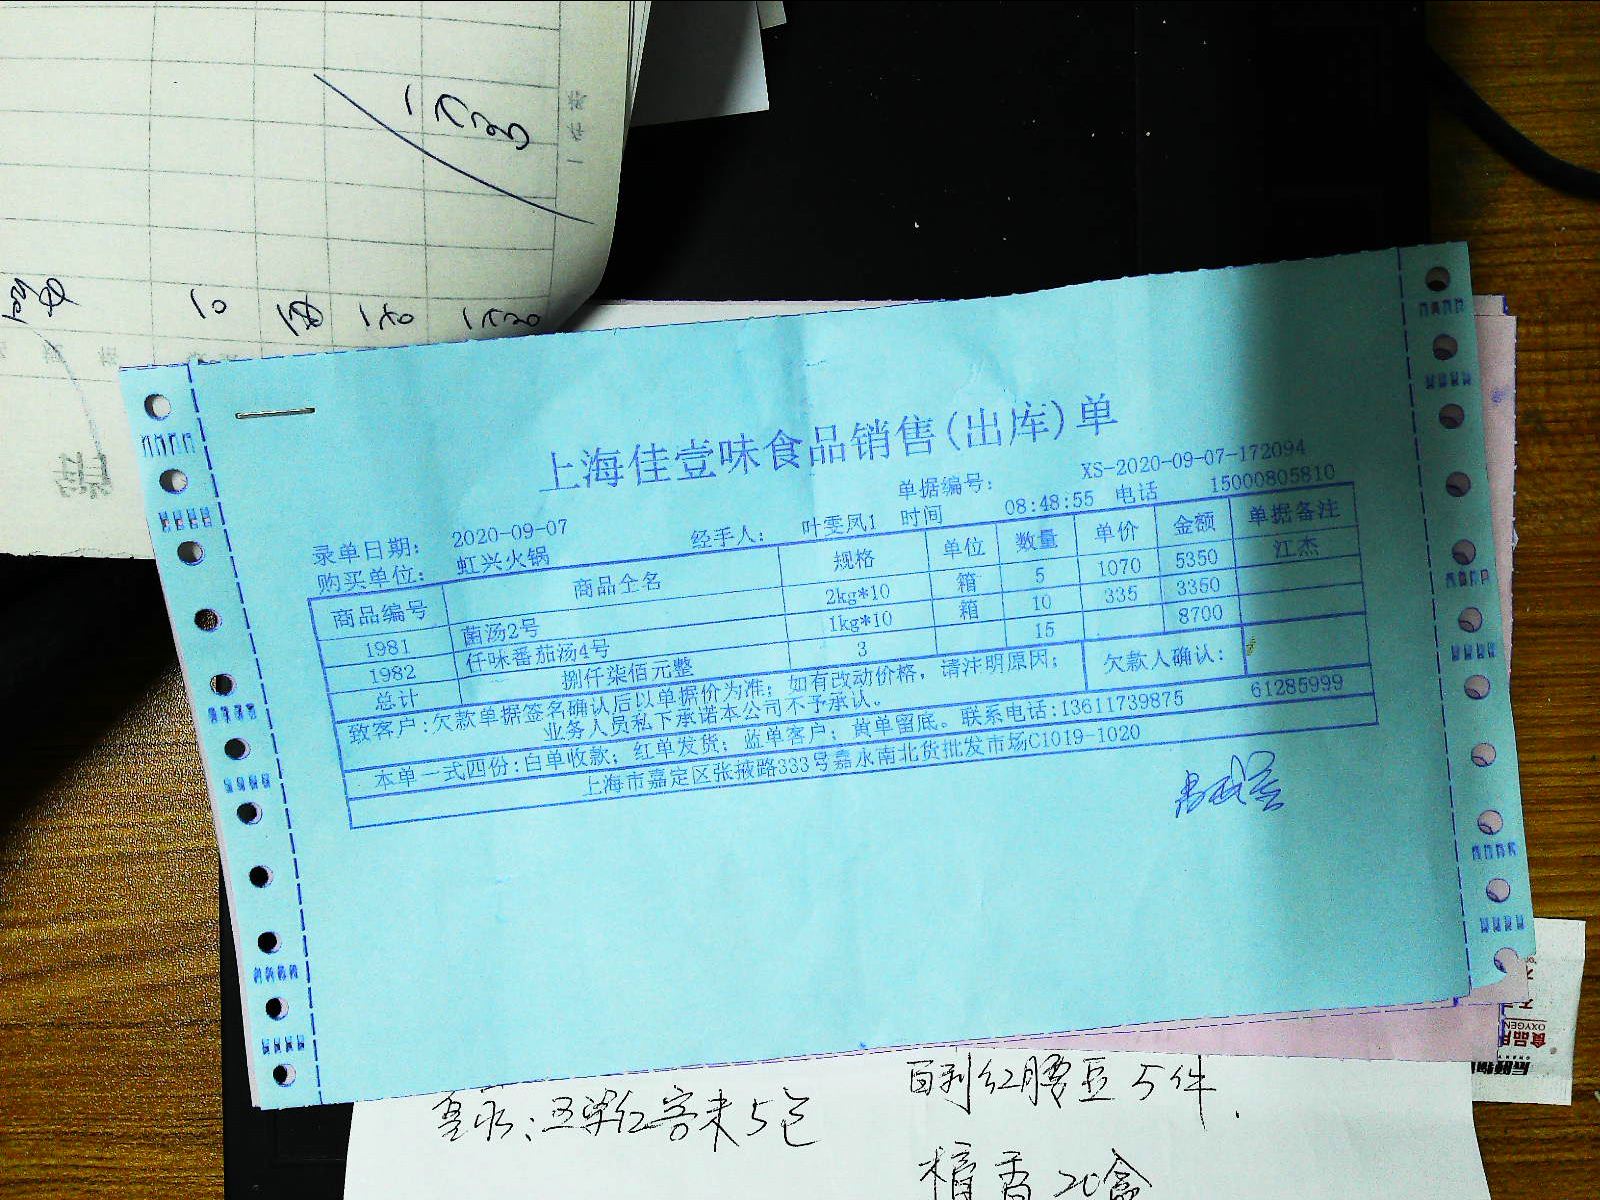 上海佳壹味食品销售(出库)单
单据编号: XS-2020-09-07-172094
录单日期: 2020-09-07 经手人: 叶雯凤1 时间 08:48:55 电话 15000805810
购买单位: 虹兴火锅
商品编号 商品全名 规格 单位 数量 单价 金额 单据备注
1981 菌汤2号 2kg*10 箱 5 1070 5350 江杰
1982 仟味番茄汤4号 1kg*10 箱 10 335 3350
总计 捌仟柒佰元整 3 15 8700
致客户:欠款单据签名确认后以单据价为准; 如有改动价格, 请注明原因;
业务人员私下承诺本公司不予承认。
欠款人确认:
本单一式四份:白单收款; 红单发货; 蓝单客户; 黄单留底。联系电话:13611739875 61285999
上海市嘉定区张掖路333号嘉永南北货批发市场C1019-1020
百利红腰豆5件.
5包
檀香20盒
OXYGEN